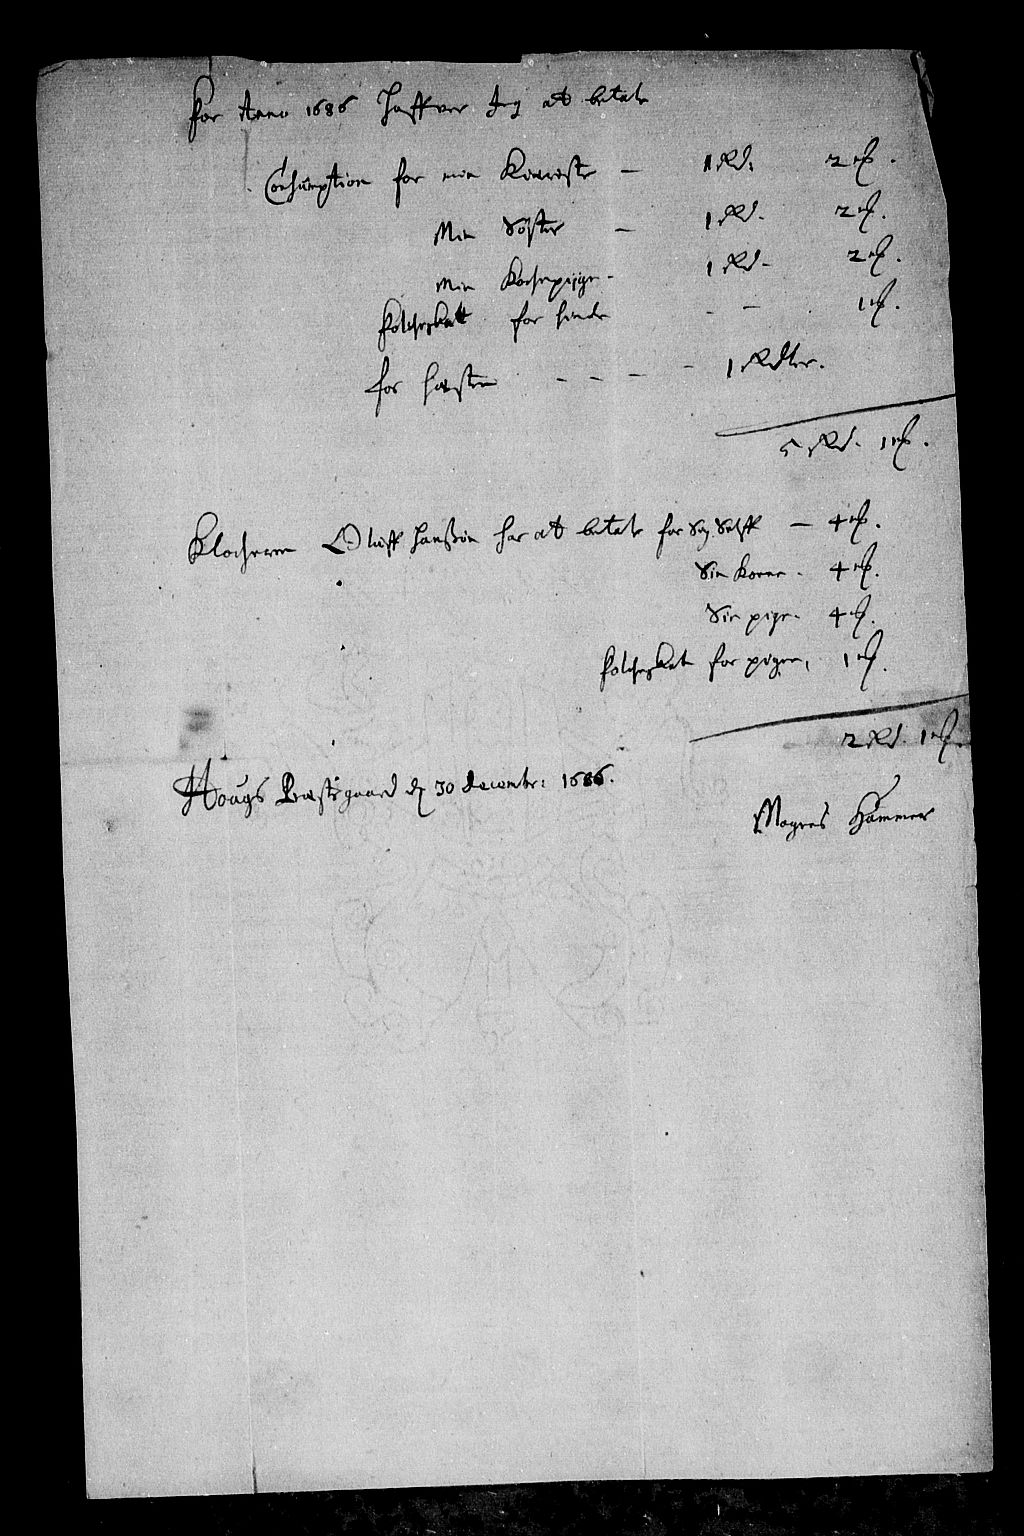 For Anno 1686 Haffver Jeg at betale
Consumption for min Kiereste — 1 Rd. 2 mʃ.
Min Søster — 1 Rd. 2 mʃ.
Min Kochepige - 1 Rd - 2 mʃ.
folcheskatt for hinde - — 1 mʃ.
for hæsten - - - - 1 Rdler.
5 Rd. 1 mʃ.
Klocheren Oluff Hanssøn har at betale for Sig Selff — 4 mʃ.
Sin Kone - 4 mʃ.
Sin pige - 4 mʃ.
folcheskat for pigen, 1 mʃ.
2 Rd. 1 mʃ.
Hougs Præstegaard d 30 decembr: 1686.
Mogens Hammer